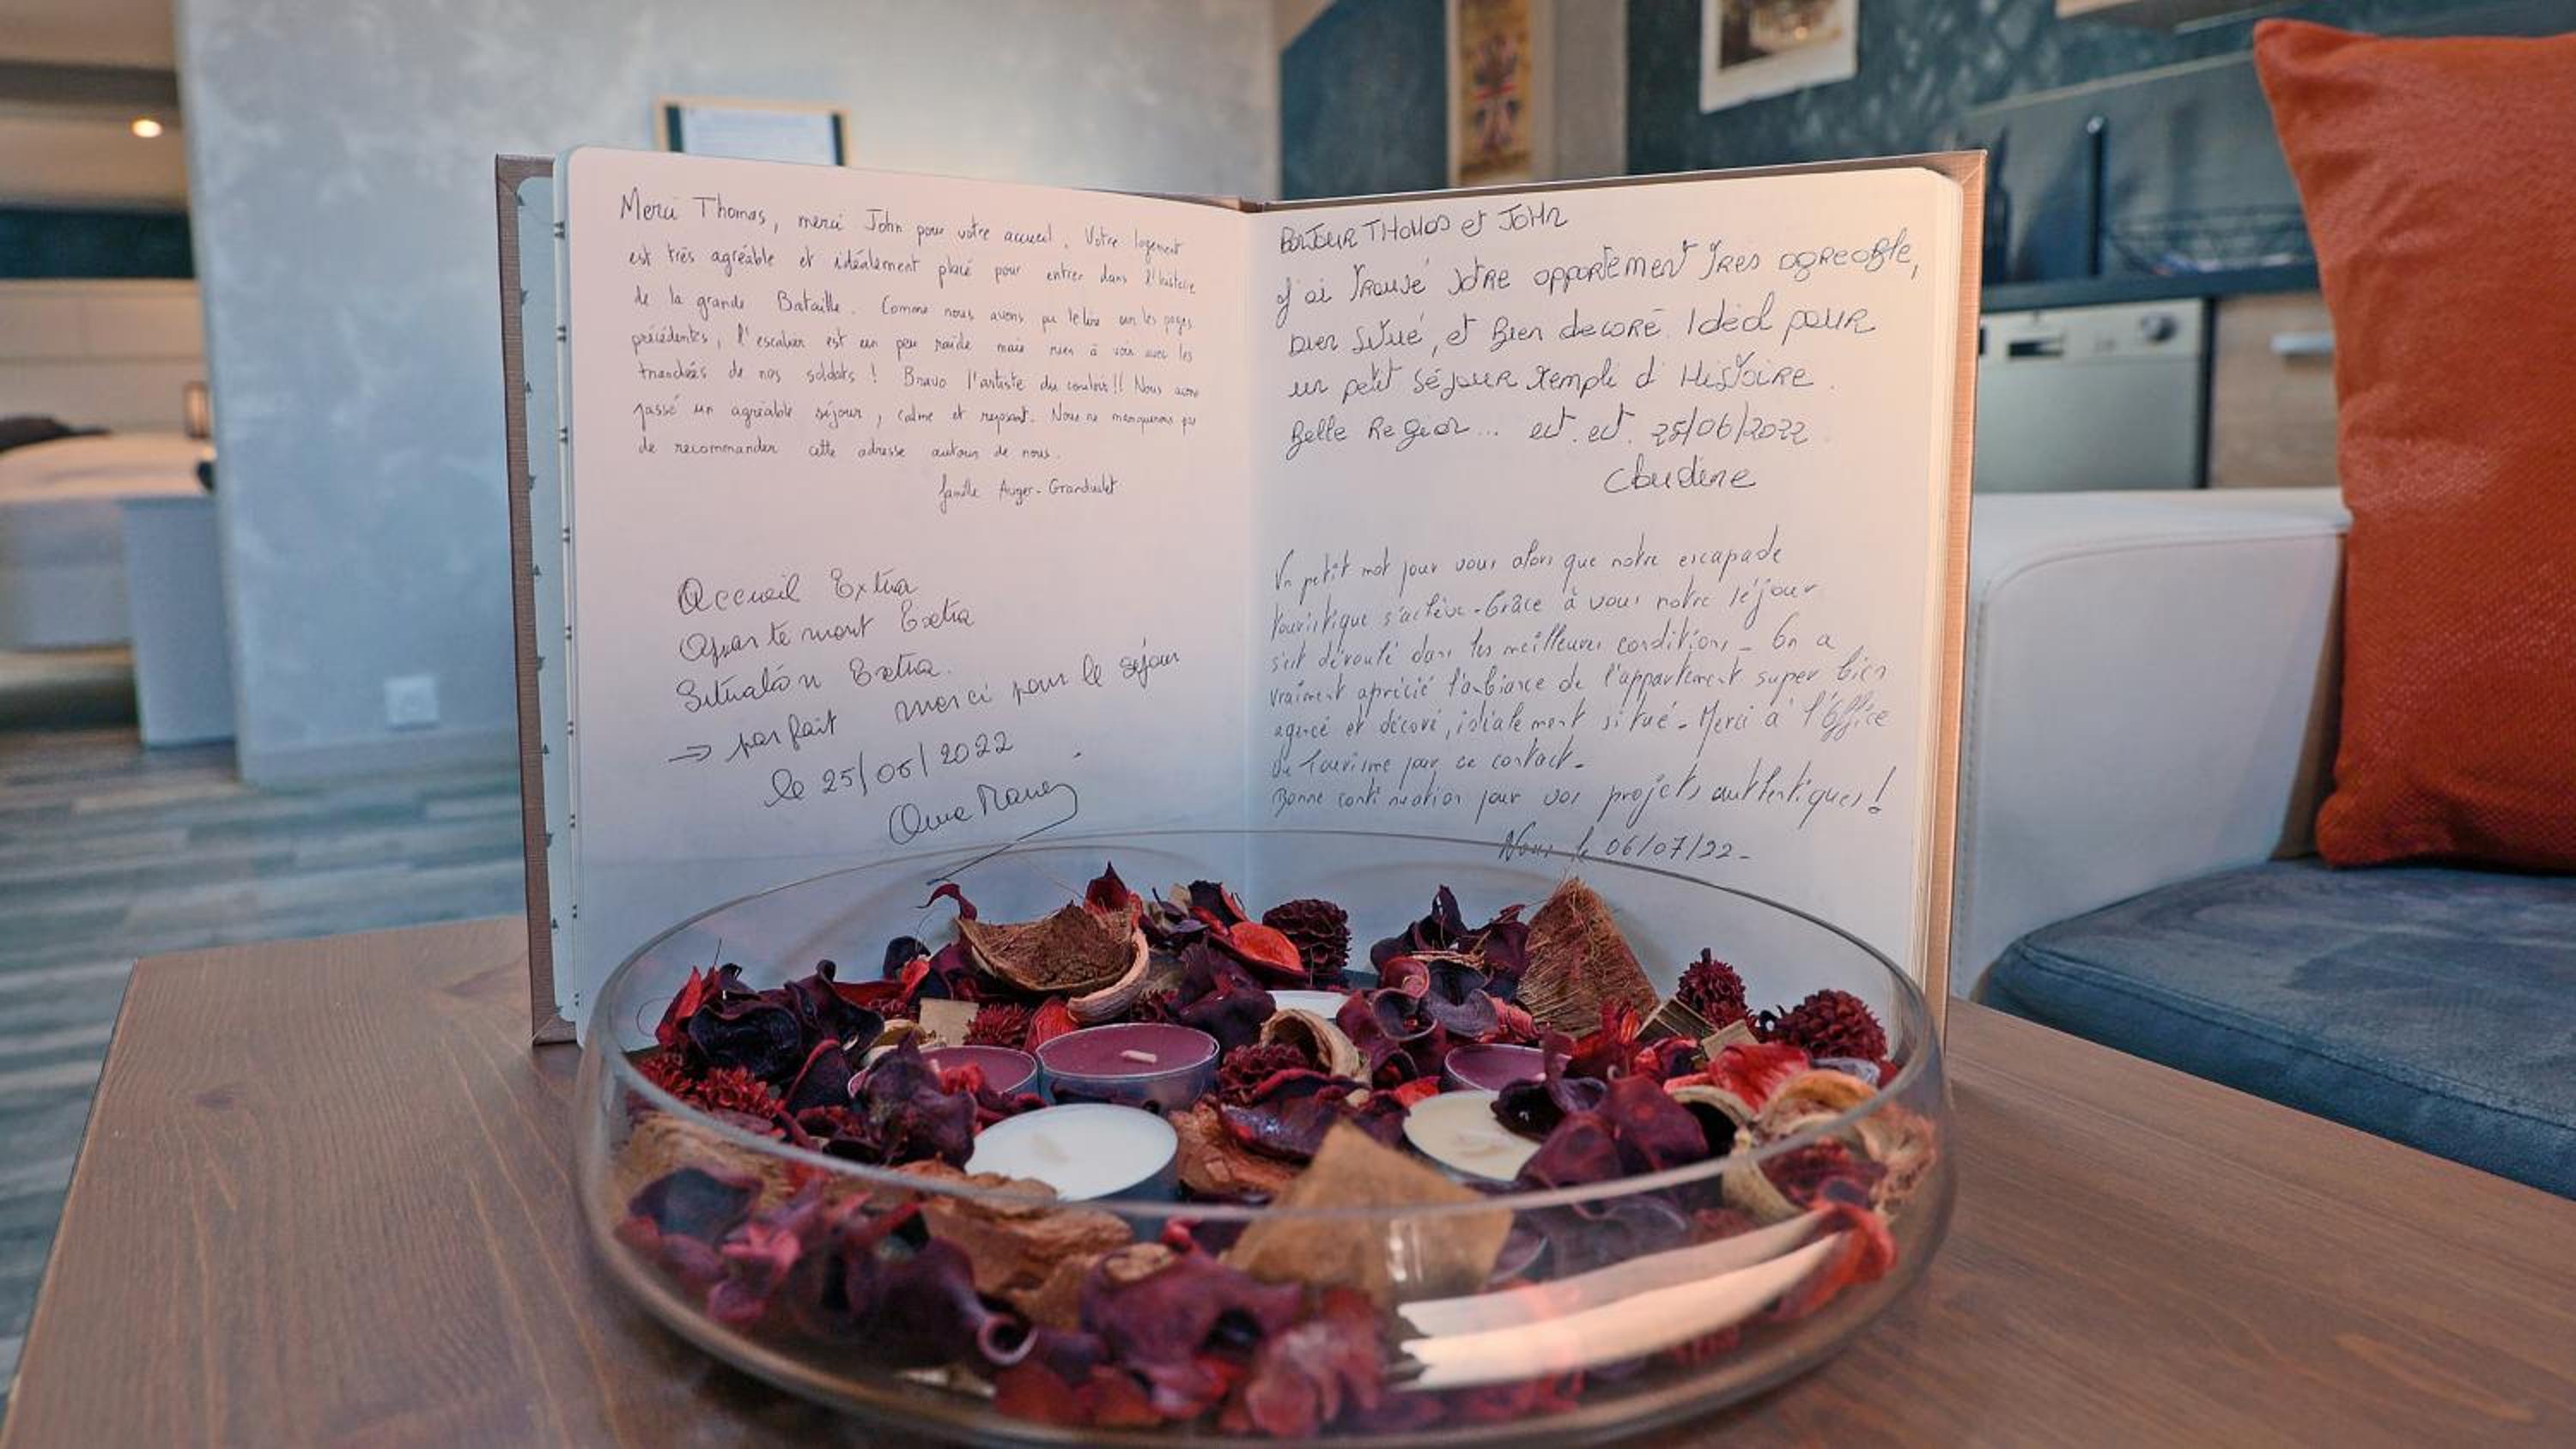 Merci Thomas, merci John pour votre accueil. Votre logement
est très agréable et idéalement placé pour entrer dans l'histoire
de la grande Bataille. Comme nous avons pu le lire sur les pages
précédentes, l'escalier est un peu raide mais rien à voir avec les
tranchées de nos soldats ! Bravo l'artiste du couloir !! Nous avons
passé un agréable séjour, calme et reposant. Nous ne manquerons pas
de recommander cette adresse autour de nous.
famille Auger-
Accueil Extra
Appartement Extra
Situation Extra.
→ parfait merci pour le séjour
le 25/06/2022
BONJOUR THOMAS et JOHN
J'ai trouvé votre appartement tres agreable,
bien situé, et bien decoré. Ideal pour
un petit séjour remplie d'Histoire.
Belle Region... ect. ect. 25/06/2022
Claudine
Un petit mot pour vous alors que notre escapade
touristique s'achève. Grâce à vous notre séjour
s'est déroulé dans les meilleures conditions - On a
vraiment aprécié l'ambiance de l'appartement super bien
agencé et décoré, idéalement situé - Merci à l'Office
de Tourisme pour ce contact.
Bonne continuation pour vos projets authentiques !
le 06/07/22-